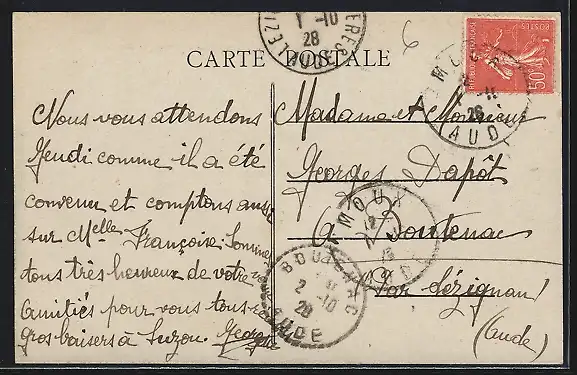 CARTE POSTALE
Nous vous attendons
Jeudi comme il a été
convenu et comptons aussi
sur Melle Françoise. Sommes
tous très heureux de votre
Amitiés pour vous tous
gros baisers à Suzon. Georges
Madame et Monsieur
Georges Dapôt
à Boutenac
Par Lézignan
(Aude)
6
1 -10
28
AUDE
POSTES
50
26
AUDE
BOUTENAC
2 -10
28
AUDE